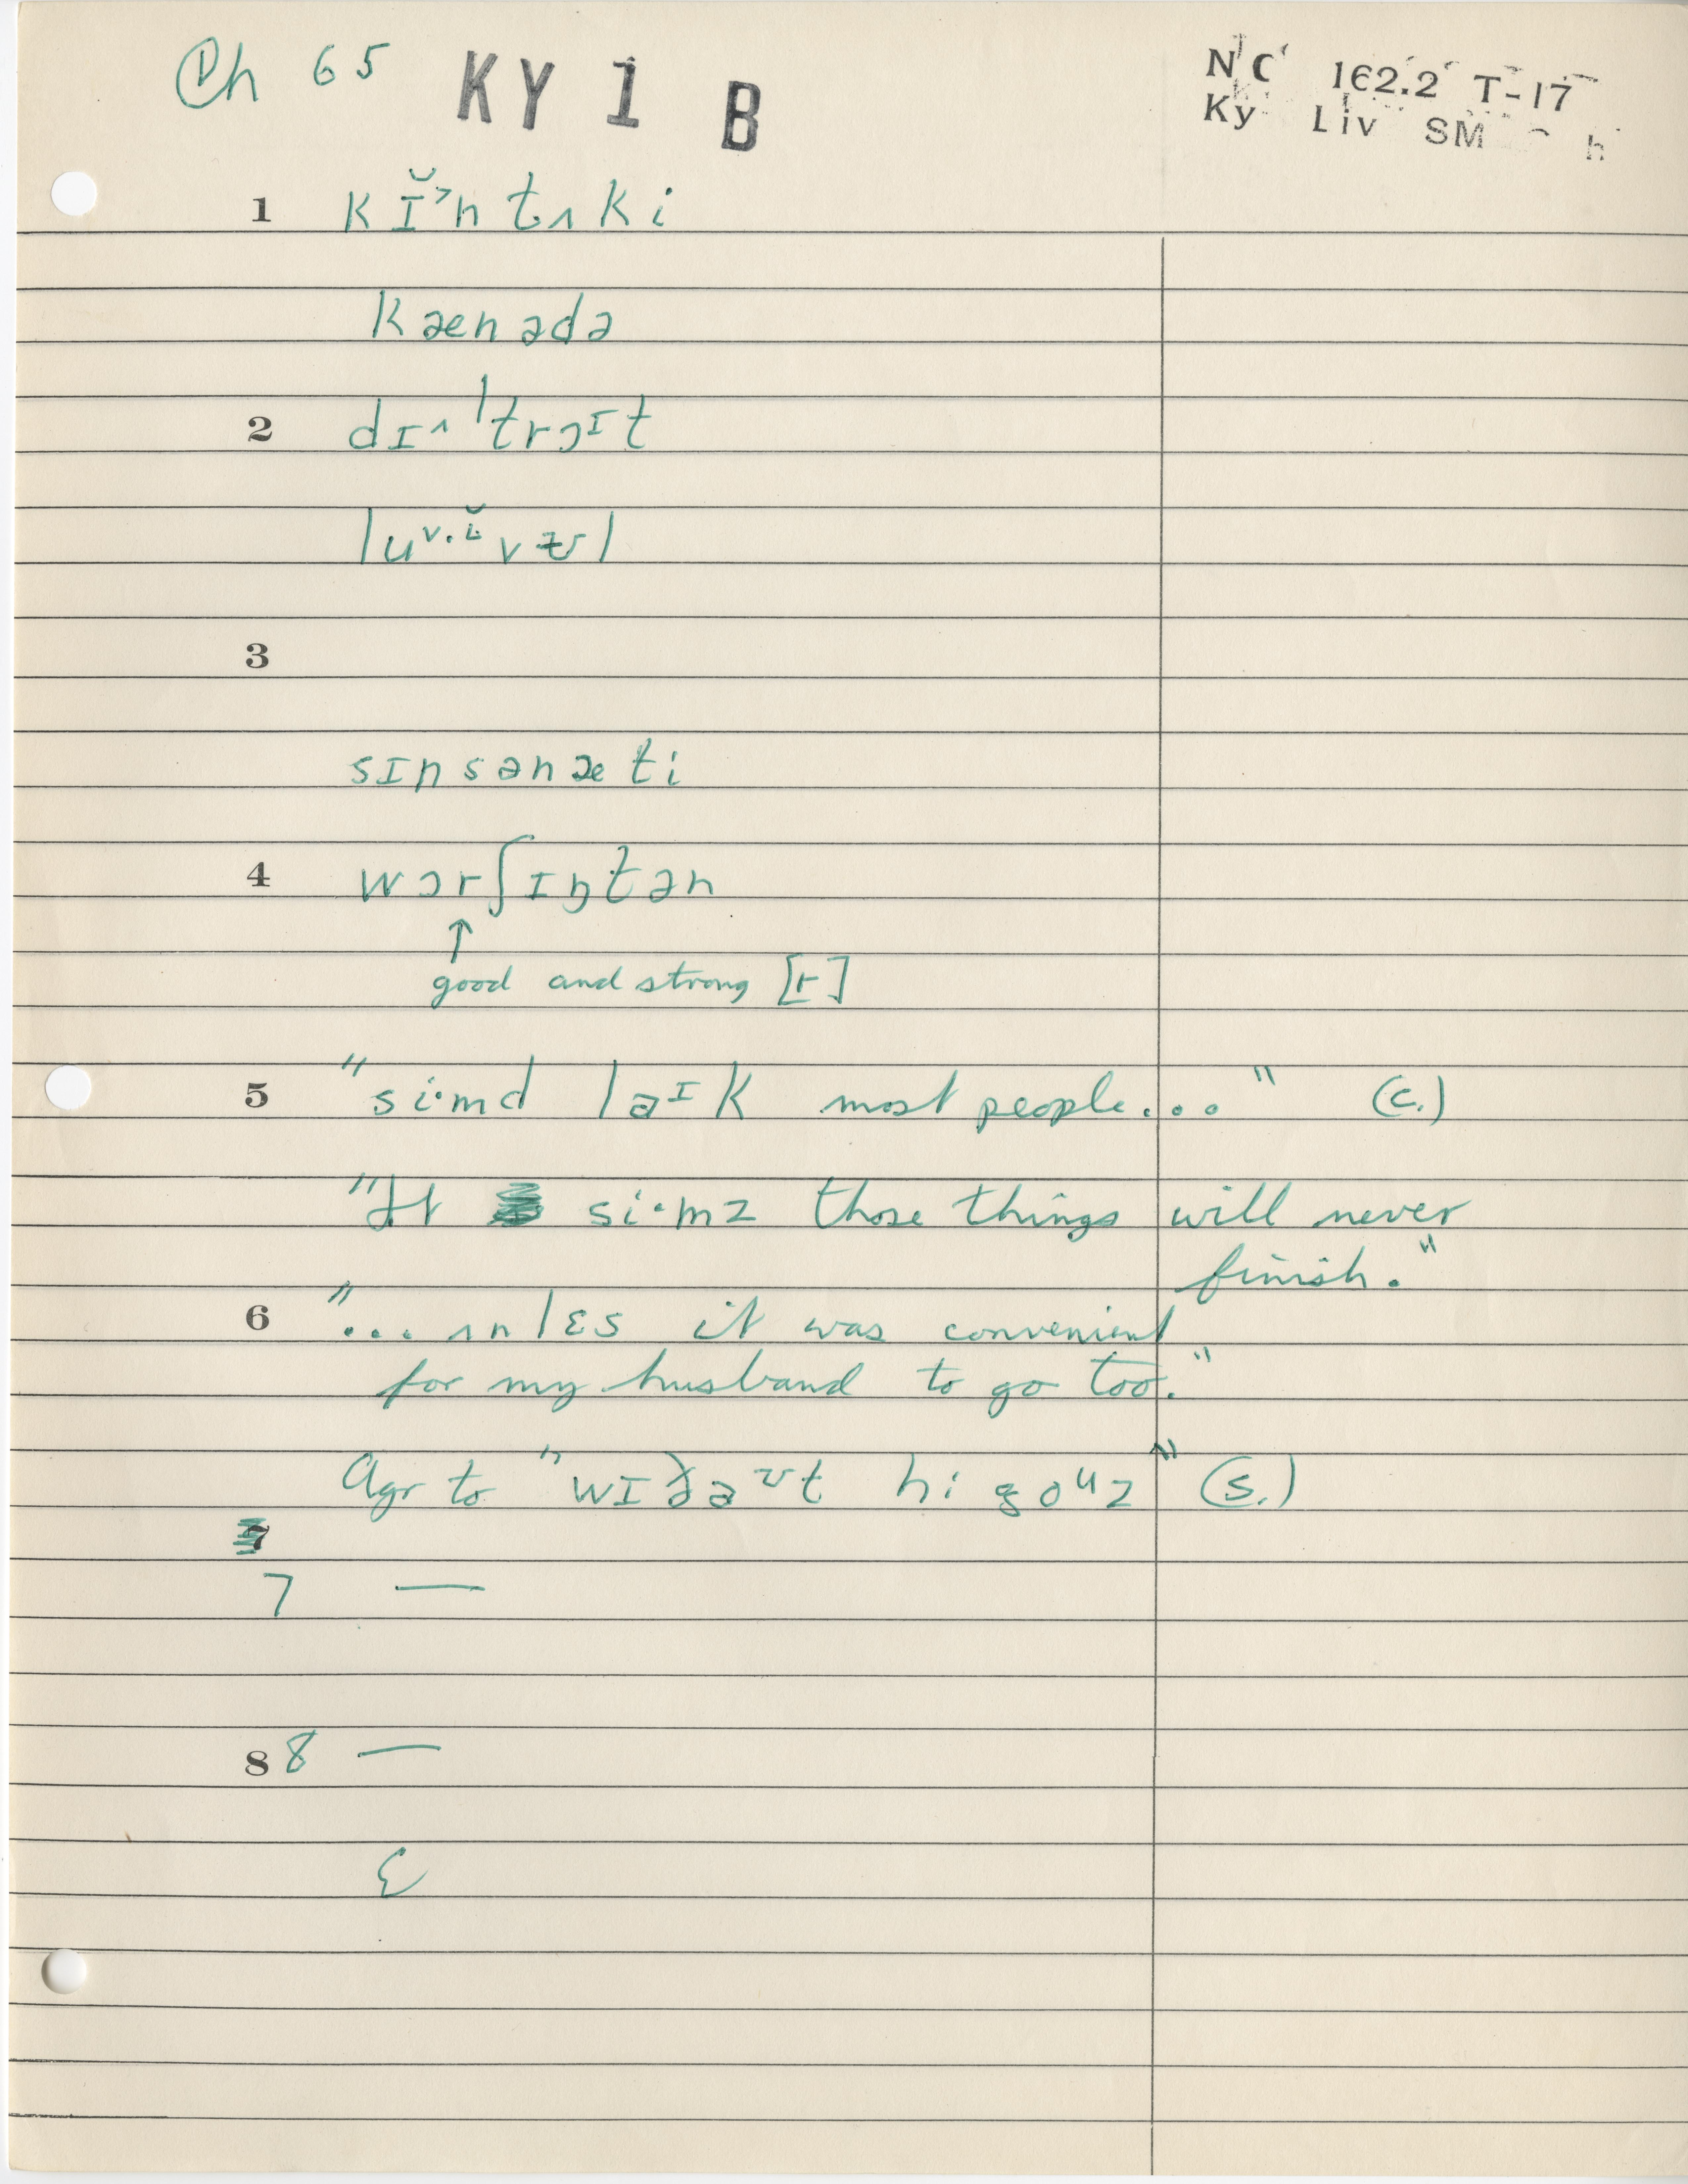 Ch 65 KY 1 B
NC 162.2 T-17
Ky Liv SM h
1 kɪ̆˃ntʌki
kænədə
2 dɪ^ˈtrɔᶦt
luᵛ·ĭvɪl
3
sɪnsənæti
4 wɔrʃɪŋtən
↑
good and strong [r]
5 "si·md laᶦk most people..." (c.)
"It si·mz those things will never
finish."
6 "... ʌnlɛs it was convenient
for my husband to go too."
Agr to "wɪðaᶷt hi goᵘz" (s.)
7
7 —
8 8 —
ε